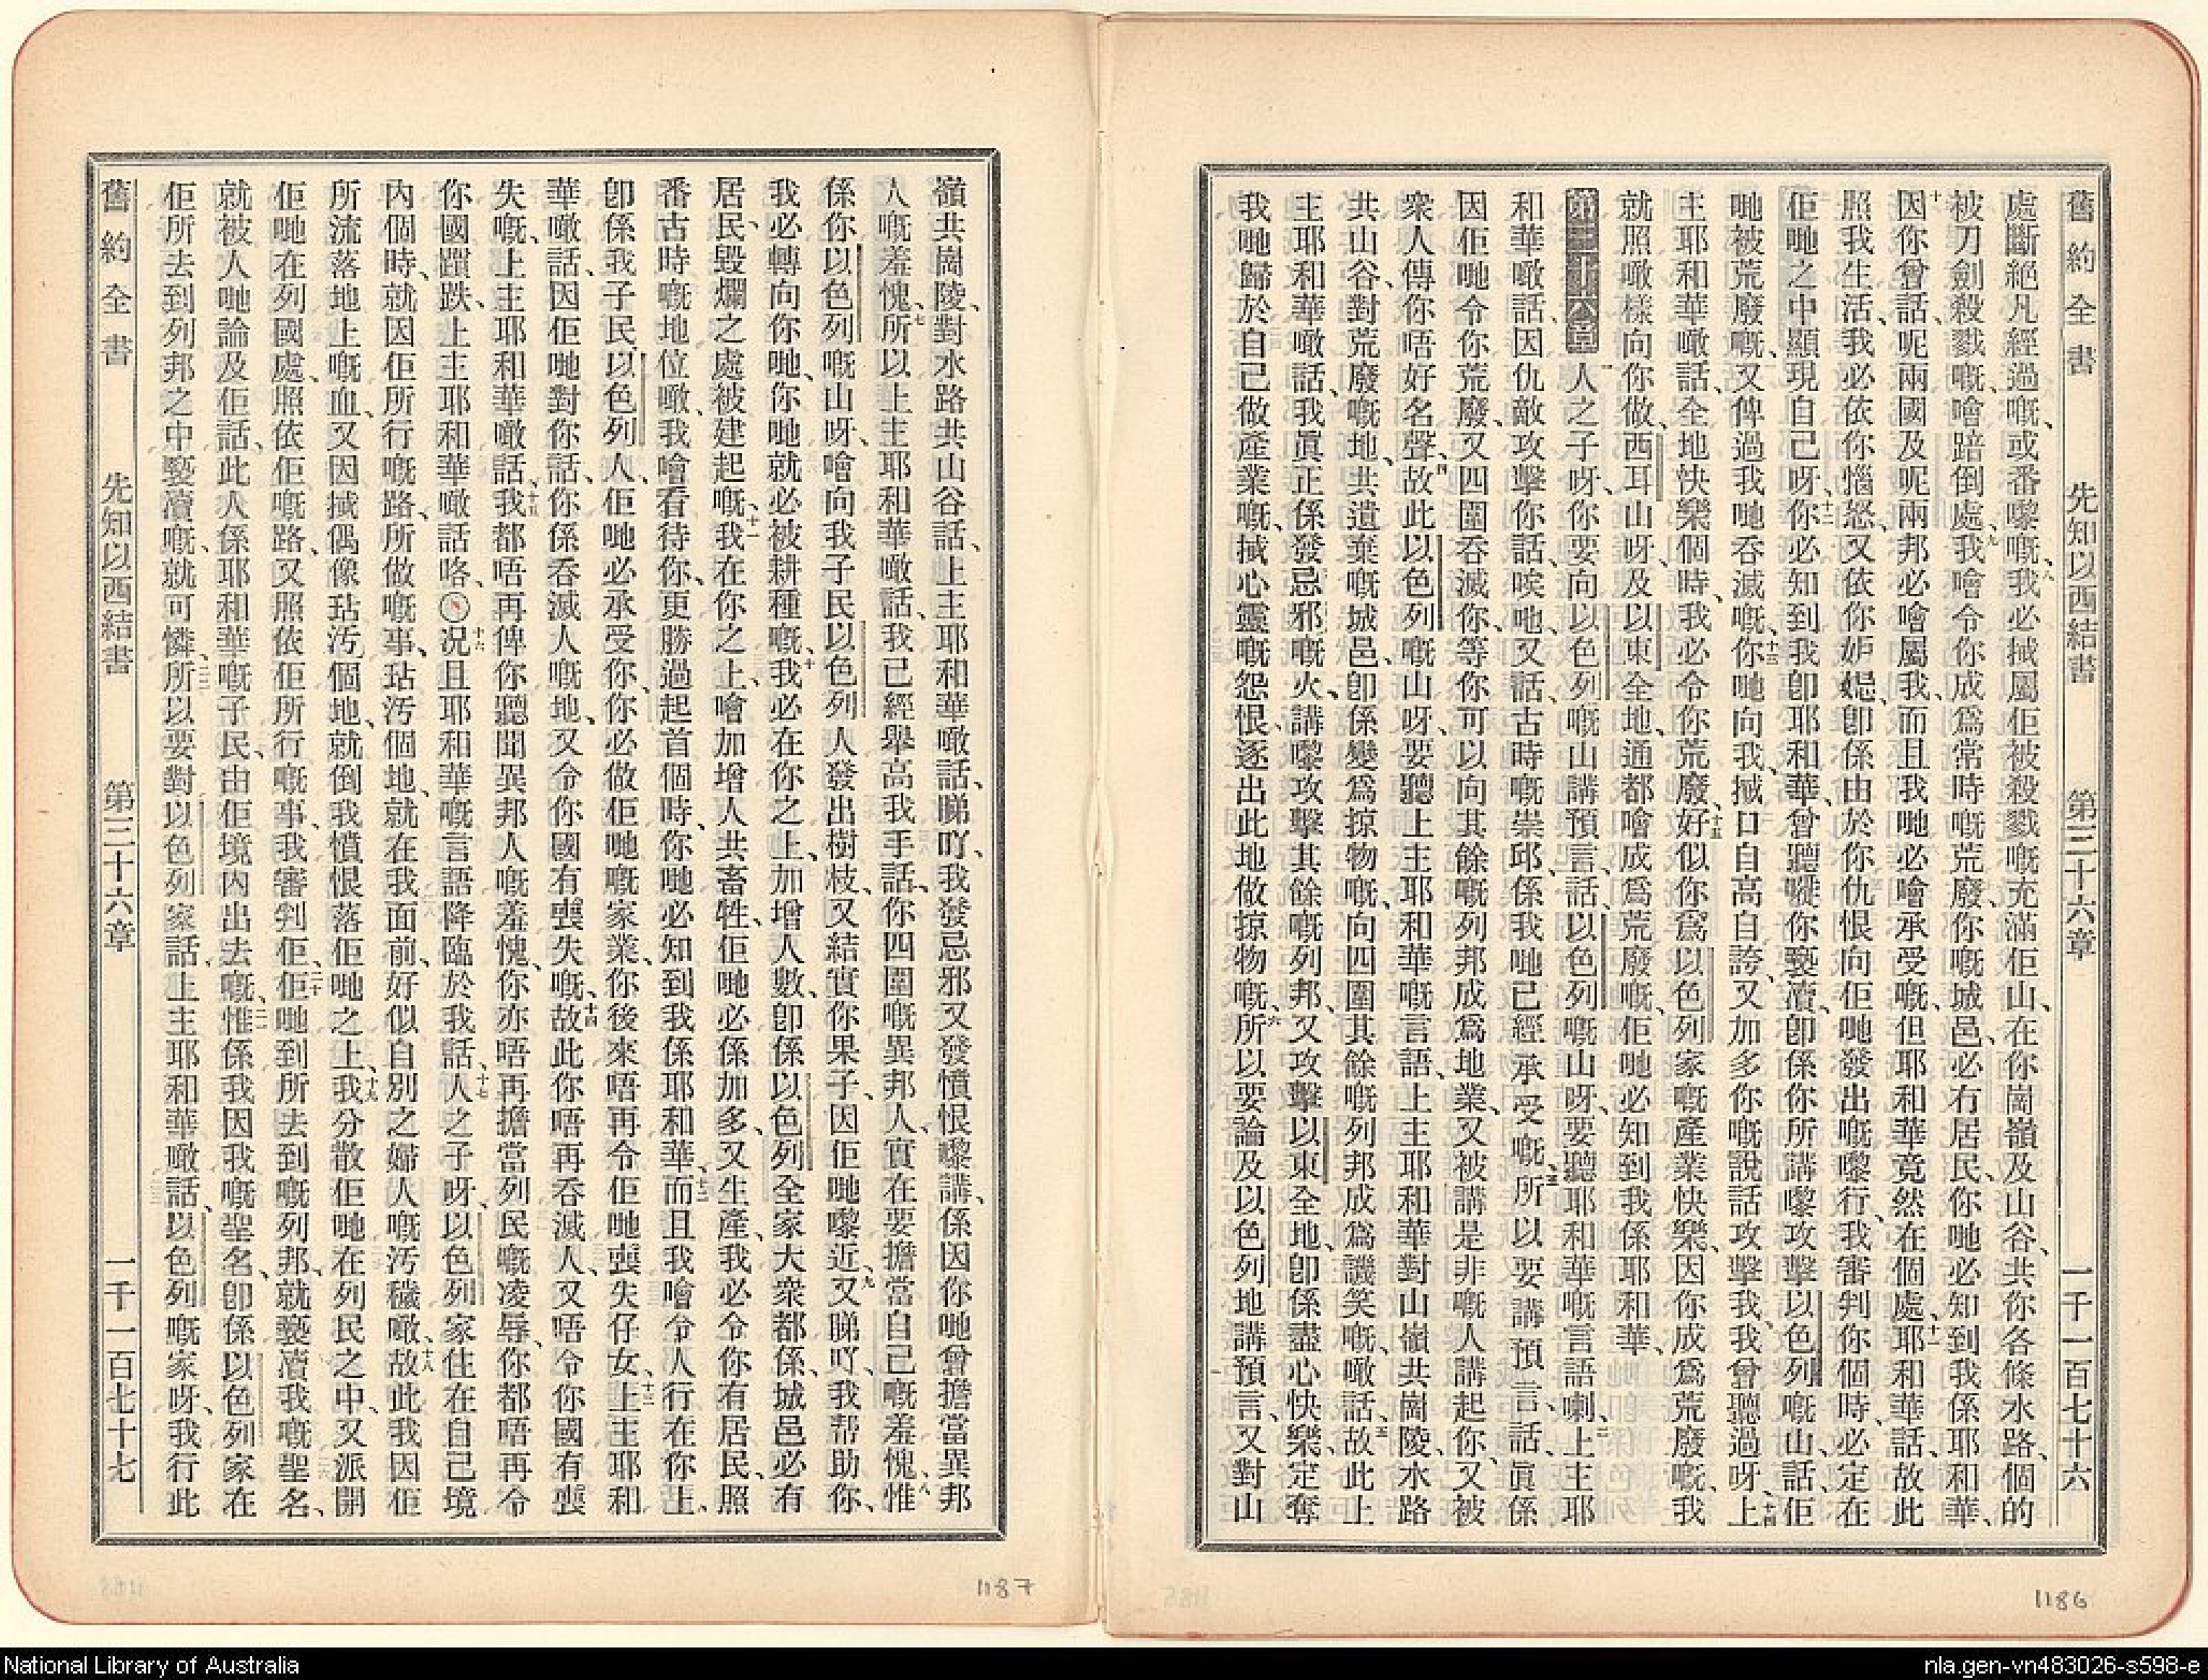 舊約全書　先知以西結書　第三十六章　一千一百七十六
處斷絕凡經過嘅、或番嚟嘅、八我必搣屬佢被殺戮嘅充滿佢山、在你崗嶺及山谷、共你各條水路、個的
被刀劍殺戮嘅、噲踣倒處、九我噲令你成爲常時嘅荒廢、你嘅城邑、必有居民、你哋必知到我係耶和華、
十因你曾話、呢兩國及呢兩邦必噲屬我、而且我哋必噲承受嘅、但耶和華竟然在個處、十一耶和華話、故此
照我生活、我必依你惱怒、又依你妒媢、卽係由於你仇恨向佢哋發出嘅嚟行、我審判你個時、必定在
佢哋之中顯現自己呀、十二你必知到我卽耶和華、曾聽嘥你褻瀆、卽係你所講嚟攻擊以色列嘅山、話、佢
哋被荒廢嘅、又俾過我哋吞滅嘅、十三你哋向我、搣口自高自誇、又加多你嘅說話攻擊我、我曾聽過呀、十四上
主耶和華噉話、全地快樂個時、我必令你荒廢、十五好似你爲以色列家嘅產業快樂、因你成爲荒廢嘅、我
就照噉樣向你做、西耳山呀、及以東全地、通都噲成爲荒廢嘅、佢哋必知到我係耶和華、
第三十六章　一人之子呀、你要向以色列嘅山講預言、話、以色列嘅山呀、要聽耶和華嘅言語喇、二上主耶
和華噉話、因仇敵攻擊你話、唉吔、又話、古時嘅崇邱、係我哋已經承受嘅、三所以要講預言、話、眞係
因佢哋令你荒廢、又四圍吞滅你、等你可以向其餘嘅列邦成爲地業、又被講是非嘅人講起你、又被
衆人傳你唔好名聲、四故此以色列嘅山呀、要聽上主耶和華嘅言語、上主耶和華對山嶺共崗陵、水路
共山谷、對荒廢嘅地、共遺棄嘅城邑、卽係變爲掠物嘅、向四圍其餘嘅列邦成爲譏笑嘅、噉話、五故此上
主耶和華噉話、我眞正係發忌邪嘅火、講嚟攻擊其餘嘅列邦、又攻擊以東全地、卽係盡心快樂、定奪
我哋歸於自己做產業嘅、搣心靈嘅怨恨、逐出此地做掠物嘅、六所以要論及以色列地講預言、又對山
1186
嶺共崗陵、對水路共山谷話、上主耶和華噉話、睇吖、我發忌邪又發憤恨嚟講、係因你哋曾擔當異邦
人嘅羞愧、七所以上主耶和華噉話、我已經舉高我手話、你四圍嘅異邦人、實在要擔當自己嘅羞愧、八惟
係你以色列嘅山呀、噲向我子民以色列人發出樹枝、又結實你果子、因佢哋嚟近、九又睇吖、我帮助你、
我必轉向你哋、你哋就必被耕種嘅、十我必在你之上、加增人數、卽係以色列全家大衆都係、城邑必有
居民、毀爛之處被建起嘅、十一我在你之上、噲加增人共畜牲、佢哋必係加多、又生產、我必令你有居民、照
番古時嘅地位噉、我噲看待你、更勝過起首個時、你哋必知到我係耶和華、十二而且我噲令人行在你上、
卽係我子民以色列人、佢哋必承受你、你必做佢哋嘅家業、你後來唔再令佢哋喪失仔女、十三上主耶和
華噉話、因佢哋對你話、你係吞滅人嘅地、又令你國有喪失嘅、十四故此你唔再吞滅人、又唔令你國有喪
失嘅、上主耶和華噉話、十五我都唔再俾你聽聞異邦人嘅羞愧、你亦唔再擔當列民嘅凌辱、你都唔再令
你國躓跌、上主耶和華噉話咯、〇十六况且耶和華嘅言語降臨於我話、十七人之子呀、以色列家住在自己境
內個時、就因佢所行嘅路、所做嘅事、玷汚個地、就在我面前、好似自別之婦人嘅汚穢噉、十八故此我因佢
所流落地上嘅血、又因搣偶像玷汚個地、就倒我憤恨落佢哋之上、十九我分散佢哋在列民之中、又派開
佢哋在列國處、照依佢嘅路、又照依佢所行嘅事、我審判佢、二十佢哋到所去到嘅列邦、就褻瀆我嘅聖名、
就被人哋論及佢話、此人係耶和華嘅子民、由佢境內出去嘅、二一惟係我因我嘅聖名、卽係以色列家在
佢所去到列邦之中褻瀆嘅、就可憐、二二所以要對以色列家話、上主耶和華噉話、以色列嘅家呀、我行此
舊約全書　先知以西結書　第三十六章　一千一百七十七
1187
National Library of Australia
nla.gen-vn483026-s598-e